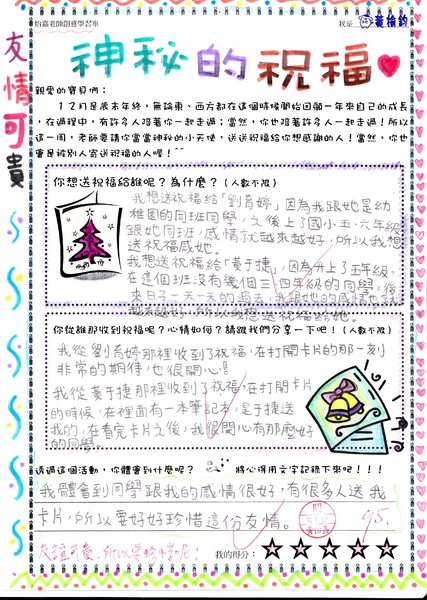 怡嘉老師創意學習單
我是
黃榆鈞
友情可貴
神秘的祝福
親愛的寶貝們：
12月是歲末年終，無論東、西方都在這個時候開始回顧一年來自己的成長
，在過程中，有許多人陪著你一起走過；當然，你也陪著許多人一起走過！所以
這一周，老師要請你當當神秘的小天使，送送祝福給你想感謝的人！當然，你也
會是被別人寄送祝福的人喔！^^
你想送祝福給誰呢？為什麼？(人數不限)
我想送祝福給「劉育婷」，因為我跟她是幼
稚園的同班同學，之後上了國小五、六年級
跟她同班，感情就越來越好，所以我想
送祝福感她。
我想送祝福給「黃于捷」，因為升上了五年級，
在這個班沒有幾個三、四年級的同學，後
來日子一天一天的過去，我跟她的感情也就
越來越好，所以我想送祝福給她。
你從誰那收到祝福呢？心情如何？請跟我們分享一下吧！(人數不限)
我從劉育婷那裡收到了祝福，在打開卡片的那一刻
非常的期待，也很開心！
我從黃于捷那裡收到了祝福，在打開卡片
的時候，在裡面有一本筆記本，是于捷送
我的，在看完卡片之後，我很開心有那麼好
的同學。
透過這個活動，你體會到什麼呢？ 將心得用文字記錄下來吧！！！
我體會到同學跟我的感情很好，有很多人送我
卡片，所以要好好珍惜這份友情。
95.
友誼可貴，所以要珍惜呢！
我的得分：☆☆☆☆☆